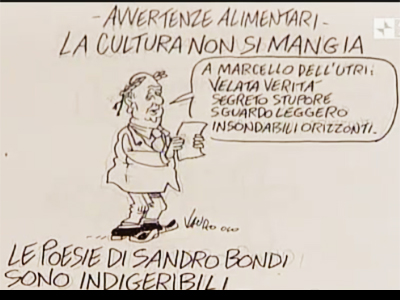 -AVVERTENZE ALIMENTARI-
LA CULTURA NON SI MANGIA
A MARCELLO DELL'UTRI:
VELATA VERITÀ
SEGRETO STUPORE
SGUARDO LEGGERO
INSONDABILI ORIZZONTI.
VAURO
LE POESIE DI SANDRO BONDI
SONO INDIGERIBILI